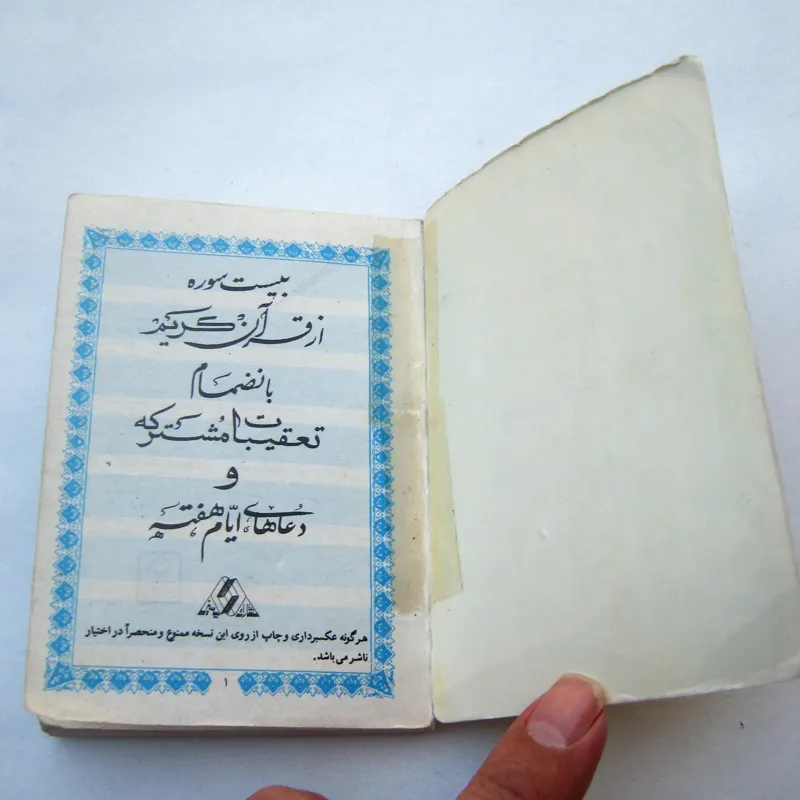 بیست سوره
از قرآن کریم
بانضمام
تعقیبات مشترکه
و
دعاهای ایّام هفته
هرگونه عکسبرداری و چاپ از روی این نسخه ممنوع و منحصراً در اختیار
ناشر می باشد.
۱